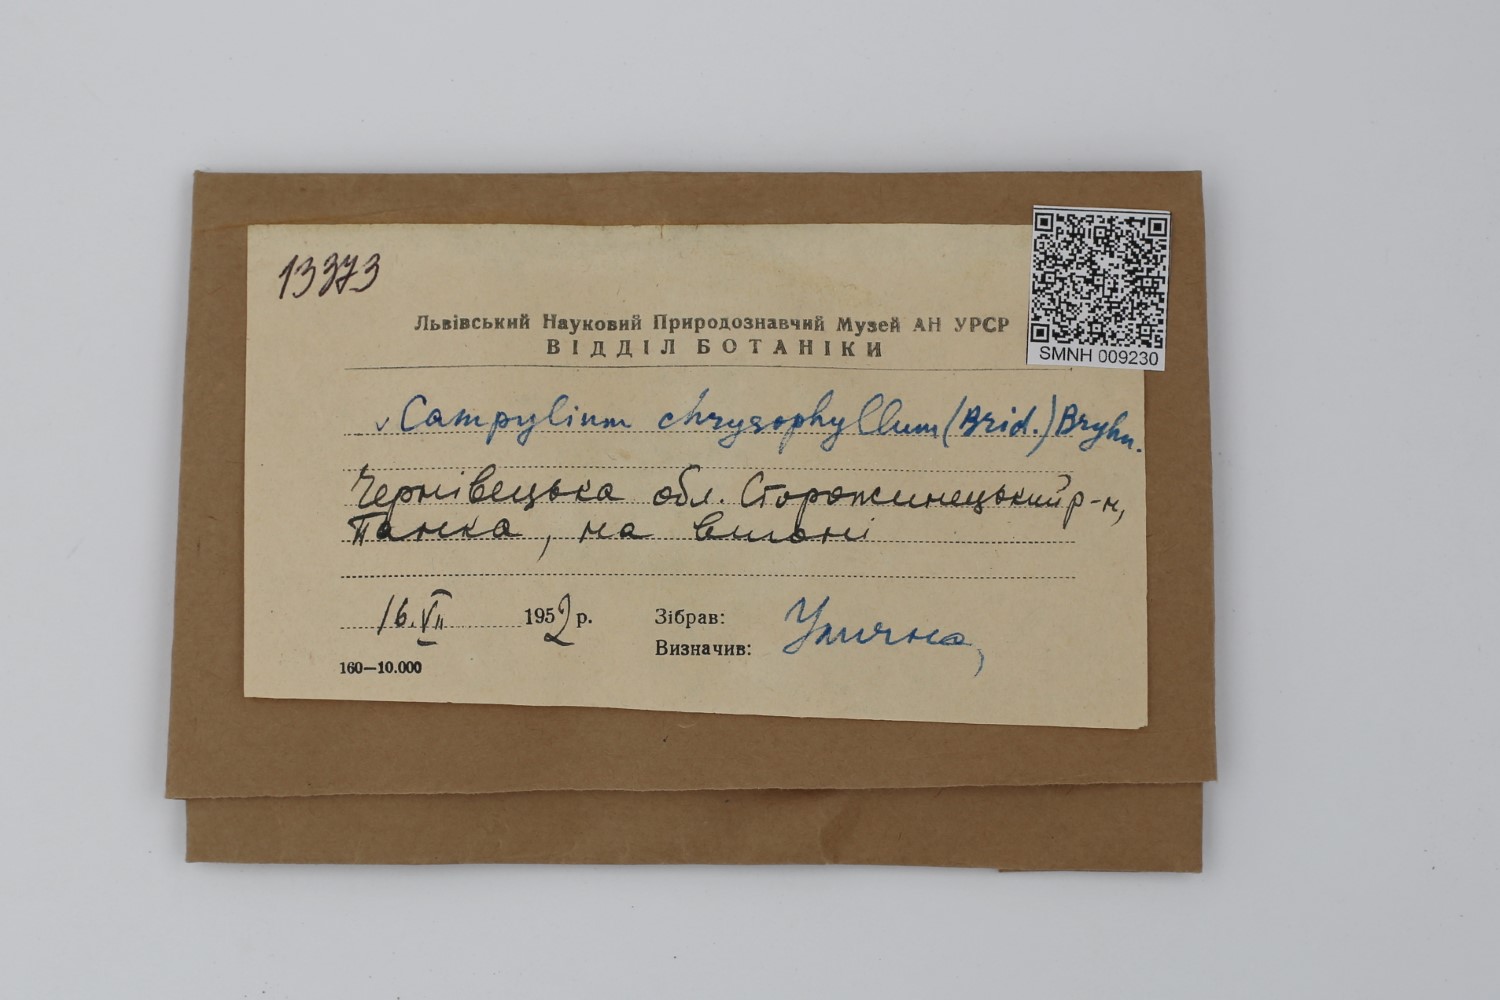 13373
Львівський Науковий Природознавчий Музей АН УРСР
ВІДДІЛ БОТАНІКИ
SMNH 009230
v Campylium chrysophyllum (Brid.) Bryhn.
Чернівецька обл. Сторожинецький р-н,
Панка, на
16.VII 1952 р.
Зібрав:
Визначив: Улична,
160—10.000